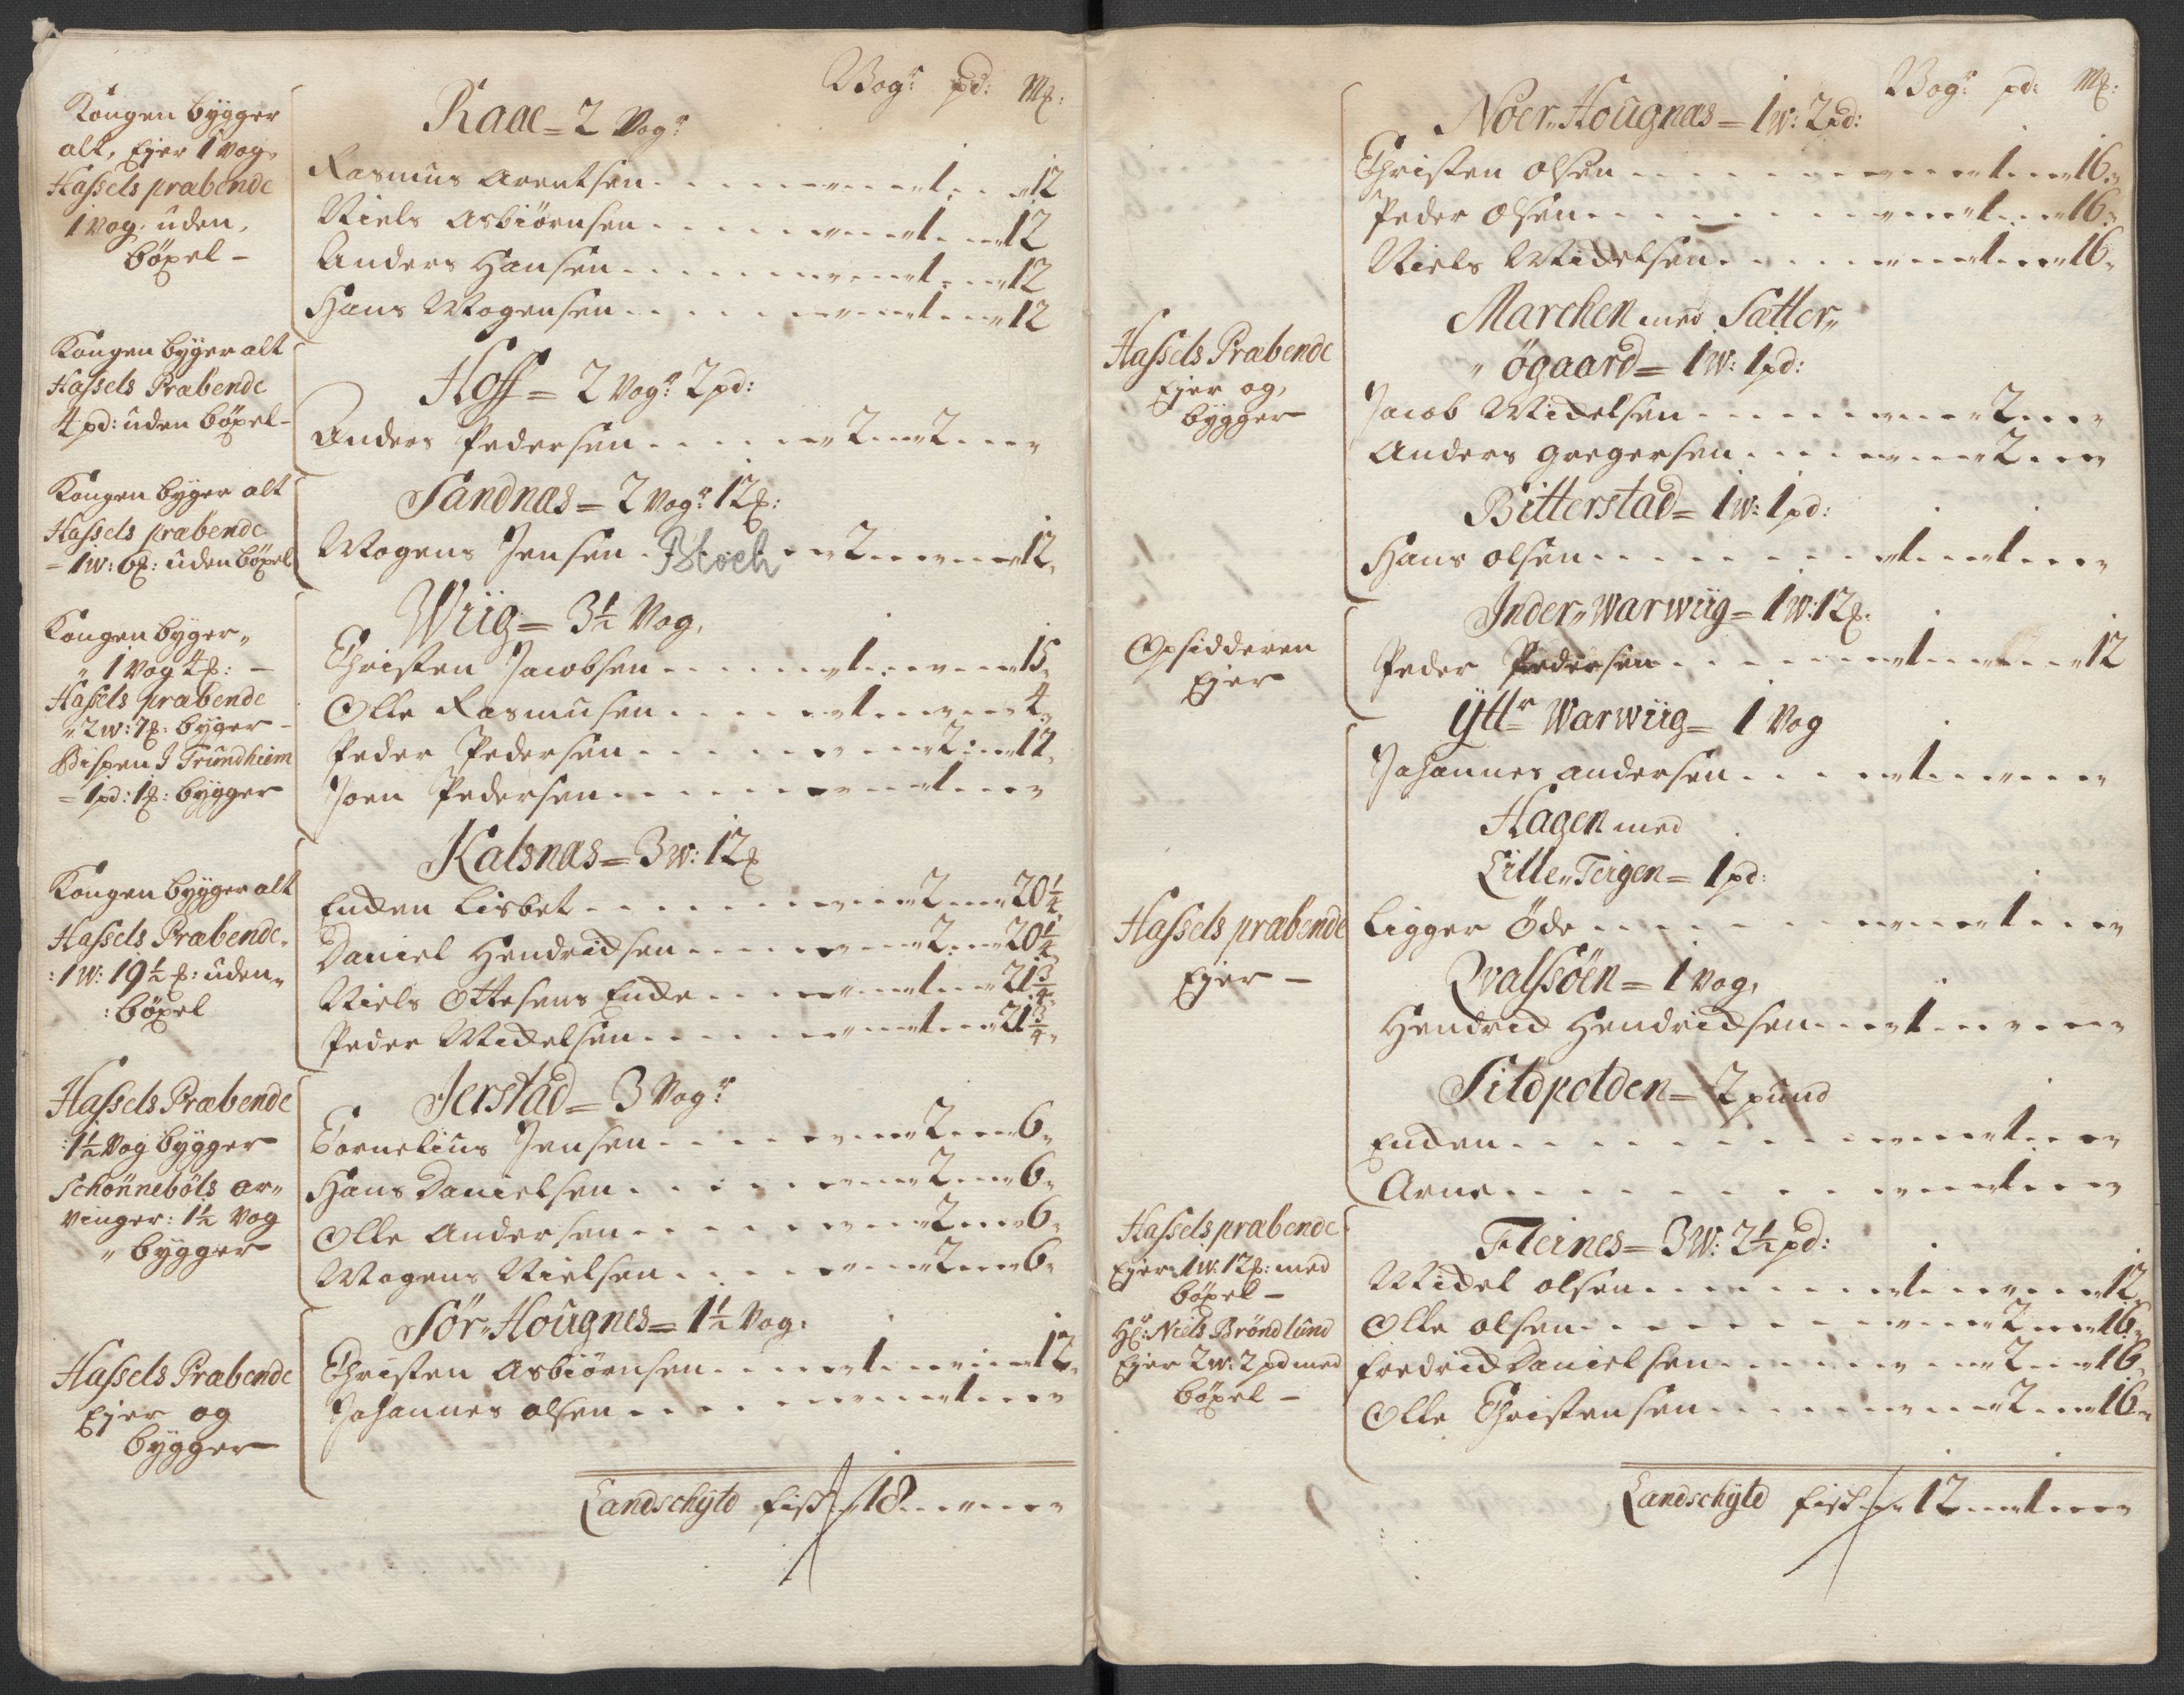 Vog^r pd: M℔:
Kongen bygger
alt, Ejer 1 Vog,
Hassels præbende
1 Vog, uden,
böxel –
Raae = 2 Vog^r
Rasmus Arentsen 1 12
Niels Asbiörnsen 1 12
Anders Hansen 1 12
Hans Mogensen 1 12
Kongen byger alt
Hassels Præbende
4 pd: uden böxel –
Hoff = 2 Vog^r 2 pd:
Anders Pedersen 2 2
Kongen byger alt
Hassels præbende
= 1 w: 6 ℔: uden böxel
Sandnæs = 2 Vog^r 12 ℔:
Mogens Jensen Bloch 2 12
Kongen byger
1 Vog 4 ℔: –
Hassels præbende
2 w: 7 ℔: byger –
Bispen J Trundhiem
= 1 pd: 1 ℔: bygger
Wiig = 3½ Vog,
Christen Jacobsen 1 15
Olle Rasmusen 1 4
Peder Pedersen 2 12
Joen Pedersen 1
Kongen bygger alt
Hassels Præbende
: 1 w: 19½ ℔: uden
: böxel
Kalsnæs = 3 w: 12 ℔
Encken Lisbet 2 20¼
Daniel Hendrichsen 2 20¼
Niels Ottesens Encke 1 21¾
Peder Michelsen 1 21¾
Hassels Præbende
: 1½ Vog bygger
Schönnebóls ar„
vinger: 1½ Vog
„ bygger
Jerstad = 3 Vog^r
Cornelius Jensen 2 6
Hans Danielsen 2 6
Olle Andersen 2 6
Mogens Nielsen 2 6
Hassels Præbende
Ejer og
bygger
Sör„Hougnes = 1½ Vog:
Christen Asbiörnsen 1 12
Johannes Olsen 1
Landschyld fisk 18
Vog^r pd: M℔:
Noer„Hougnæs = 1 w: 2 pd:
Christen Olsen 1 16
Peder Olsen 1 16
Niels Michelsen 1 16
Hassels Præbende
Ejer og,
bygger
Marchen med Sætter„
„ ögaard = 1 w: 1 pd:
Jacob Michelsen 2
Anders Gregersen 2
Bitterstad = 1 w: 1 pd:
Hans Olsen 1 1
Opsidderen
Ejer
Inder„Warwiig = 1 w: 12 ℔:
Peder Pedersen 1 12
Ytt^r Warwiig = 1 Vog
Johannes Andersen 1
Hagen med
Lille„Teigen = 1 pd:
Hassels præbende
Ejer –
Ligger Öde 1
Qvalssöen = 1 Vog,
Hendrich Hendrichsen 1
Sildpolden = 2 pund
Encken 1
Arne 1
Hassels præbende
Ejer 1 w: 12 ℔: med
böxel –
H^r: Niels Bröndlund
Ejer 2 w: 2 pd med
böxel –
Fleines = 3 w: 2½ pd:
Michel Olsen 1 12
Olle Olsen 2 16
Fredrich Danielsen 2 16
Olle Christensen 2 16
Landschyld fisk 12 1